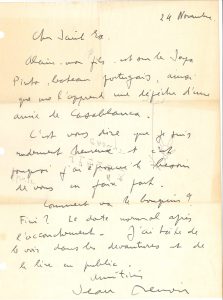 24 Novembre
Cher Saint Ex,
Alain, mon fils, est sur le
Pinto, bateau portugais, ainsi
que me l'apprend une dépêche d'une
amie de Casablanca.
C'est vous dire que je suis
rudement heureux et c'est
pourquoi j'ai éprouvé le besoin
de vous en faire part.
Comment va le bouquin ?
Fini ? Le doute normal après
l'accouchement. J'ai hâte de
le voir dans les devantures et de
le lire en public.
Amitiés
Jean Renoir